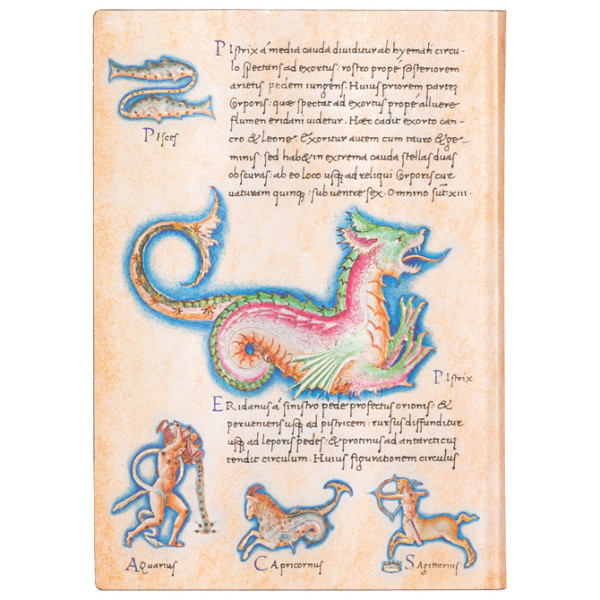 PIstrix á media cauda diuiditur ab hyemali circu-
lo spectans ad exortus: rostro propé posteriorem
arietis pedem iungens. Huius priorem partez
Corporis: quæ spectat ad exortus prope alluere
flumen eridani uidetur. Hæc cadit exorto can-
cro & Leone. Exoritur autem cum tauro & ge-
minis: sed hab& in extrema cauda stellas duas
obscuras: ab eo loco usq ad reliqui Corporis cur
uaturam quinq: sub uentre sex. Omnino sut xiii.
PIsces
PIstrix
ERidanus á sinistro pede profectus orionis: &
perueniens usq ad pistricem: rursus diffunditur
usq ad leporis pedes: & protinus ad antarcticuz
tendit circulum. Huius figurationem circulus
AQuarius
CApricornus
SAgittarius